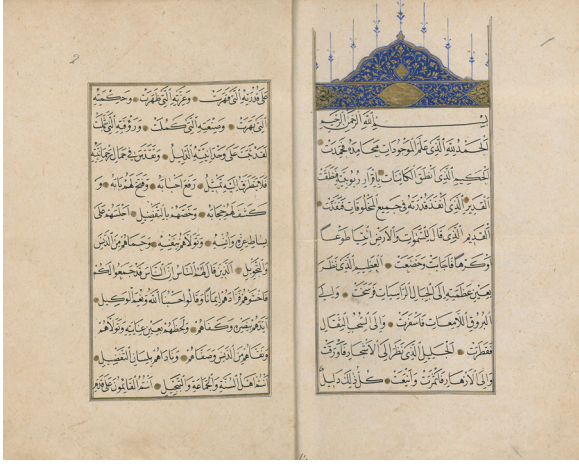 بسم الله الرحمن الرحيم
الحمد لله الذي علم الموجودات محامده فحمدت
الحكيم الذي انطق الكائنات باقرار ربوبيته فنطقت
القدير الذي انفذ قدرته في جميع المخلوقات فنفذت
القديم الذي قال للسموات والارض ائتيا طوعا
وكرها فاجابت وخضعت العظيم الذي نظر
بعين عظمته الى الجبال الراسيات والى
البروق اللامعات فاسفرت والى السحب الثقال
فقطرت الجليل الذي نظر الى الاشجار فاورقت
والى الازهار واينعت كل ذلك دليل
على قدرته التي قهرت وعزته التي ظهرت وحكمته
التي بهرت وصنعته التي كملت
على وحدانيته الدليل وتقدس في جمال
فلا اليه تمثيل رفع احبابه وفتح لهم بابه و
كشف لهم حجابه وخصهم بالتفضيل اجلسهم على
بساط عزه وتولاهم بنفسه وحماهم من الدنس
الذين قال لهم الناس ان الناس قد جمعوا لكم
فاخشوهم فزادهم ايمانا وقالوا حسبنا الله ونعم الوكيل
ايدهم بنصره وكفاهم ولحظهم بعين عنايته وتولاهم
من الدنس وصفاهم وناداهم بلسان التفضيل
انتم اهل السنة والجماعة انتم القائمون على